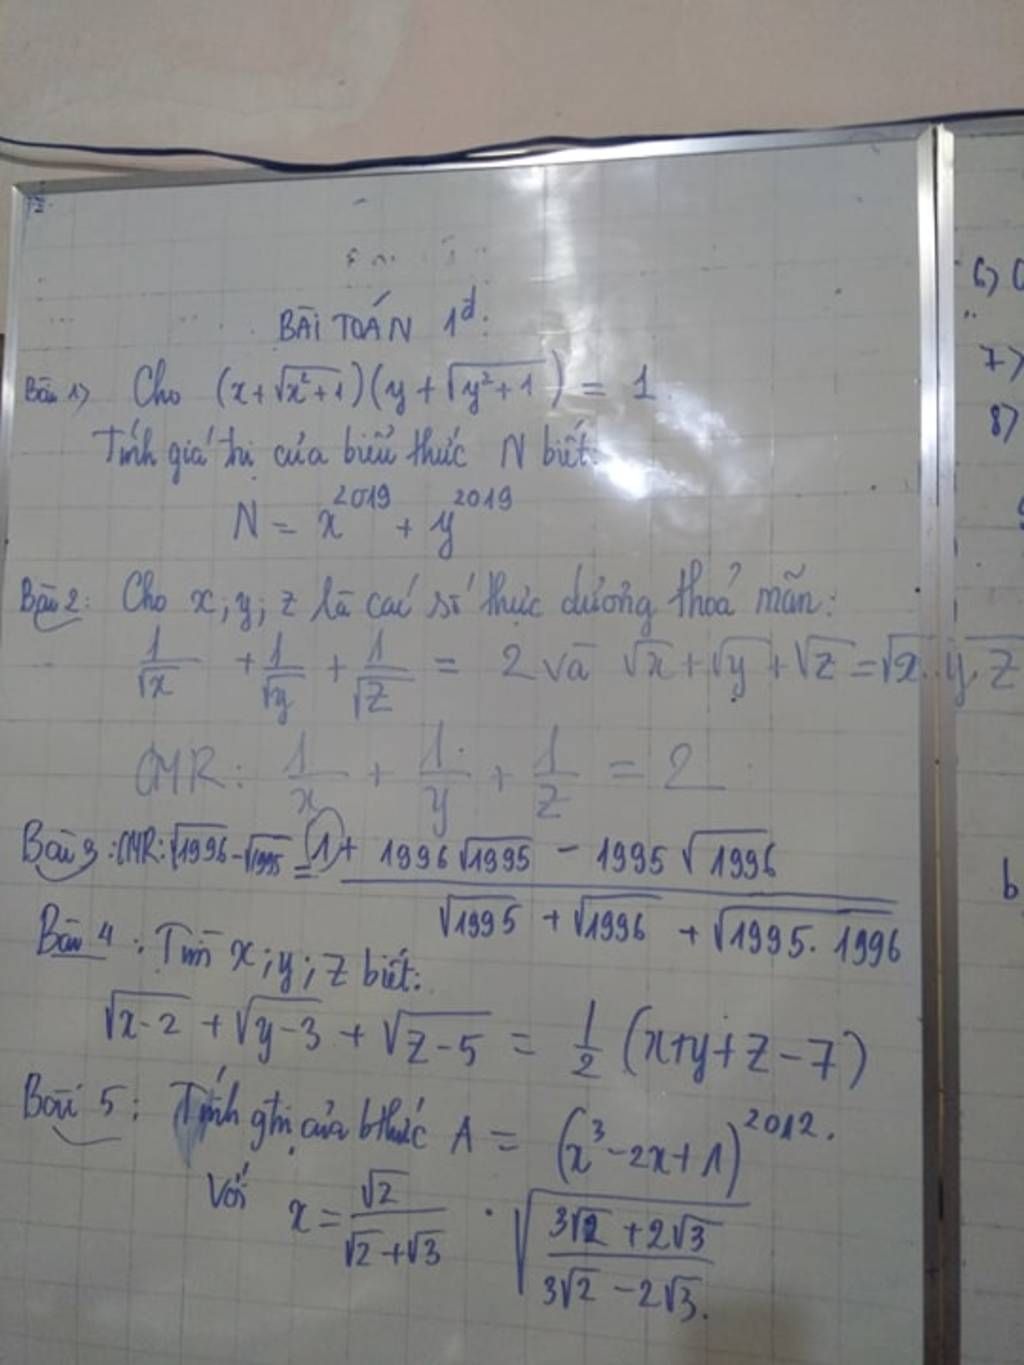 BÀI TOÁN 1đ:
Bài 1) Cho (x+√(x²+1))(y+√(y²+1)) = 1
Tính giá trị của biểu thức N biết:
N = x²⁰¹⁹ + y²⁰¹⁹
Bài 2: Cho x; y; z là các số thực dương thoả mãn:
1/√x + 1/√y + 1/√z = 2 và √x + √y + √z = √(x.y.z)
CMR: 1/x + 1/y + 1/z = 2
Bài 3: CMR: √1996 - √1995 = 1 + (1996√1995 - 1995√1996)/(√1995 + √1996 + √(1995.1996))
Bài 4: Tìm x; y; z biết:
√(x-2) + √(y-3) + √(z-5) = 1/2 (x+y+z-7)
Bài 5: Tính gtrị của bthức A = (x³-2x+1)²⁰¹².
Với x = √2/(√2+√3) . √((3√2+2√3)/(3√2-2√3)).
6)
7)
8)
b